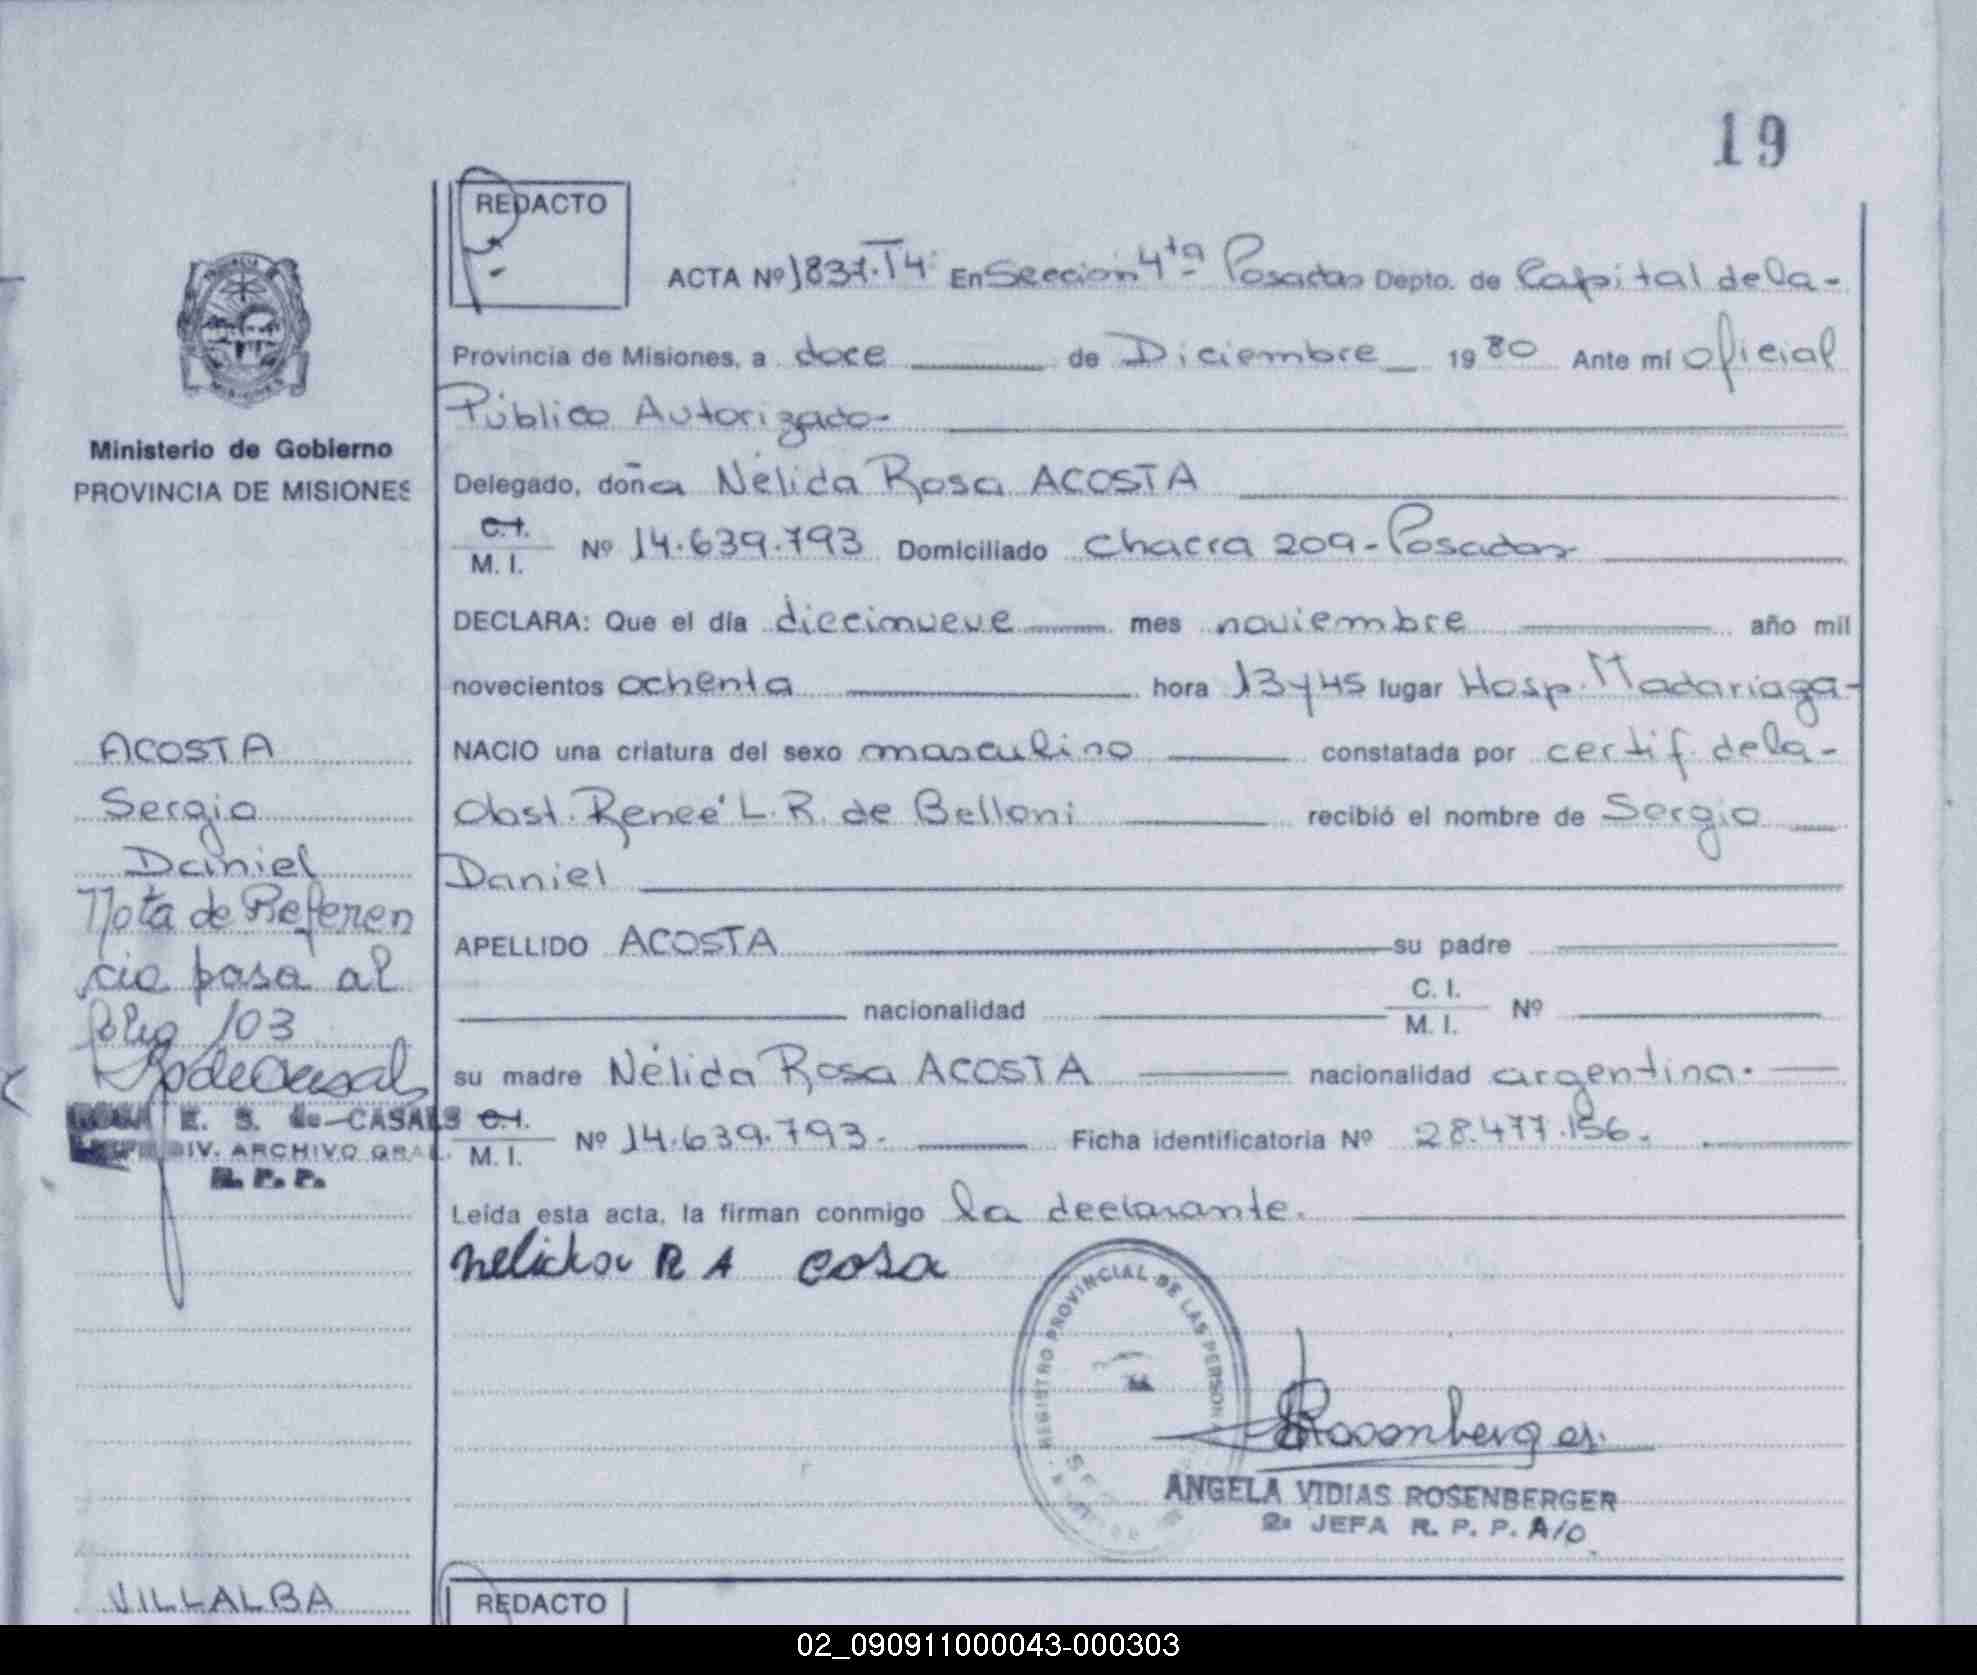 19
REDACTO
ACTA Nº 1837.T4 En Sección 4ta Posadas Depto. de Capital de la-
Provincia de Misiones, a doce de Diciembre 1980 Ante mí oficial
Público Autorizado-
Ministerio de Gobierno
PROVINCIA DE MISIONES
Delegado, doña Nélida Rosa ACOSTA
C.I.
M. I. Nº 14.639.793 Domiciliado Chacra 209-Posadas
DECLARA: Que el día diecinueve mes noviembre año mil
novecientos ochenta hora 13 y 45 lugar Hosp. Madariaga-
NACIO una criatura del sexo masculino constatada por certif. de la-
Obst. Reneé L. R. de Belloni recibió el nombre de Sergio
Daniel
APELLIDO ACOSTA su padre
nacionalidad C. I.
M. I. Nº
su madre Nélida Rosa ACOSTA nacionalidad argentina.
C.I.
M. I. Nº 14.639.793. Ficha identificatoria Nº 28.477.156.
Leída esta acta, la firman conmigo la declarante.
nelida R A cosa
ACOSTA
Sergio
Daniel
Nota de Referen
cia pasa al
folio 103
E. S. de CASALS
DIV. ARCHIVO GRAL.
R. P. P.
REGISTRO PROVINCIAL DE LAS PERSONAS
Rosenberger
ANGELA VIDIAS ROSENBERGER
2a JEFA R. P. P. A/C
VILLALBA
REDACTO
02_090911000043-000303